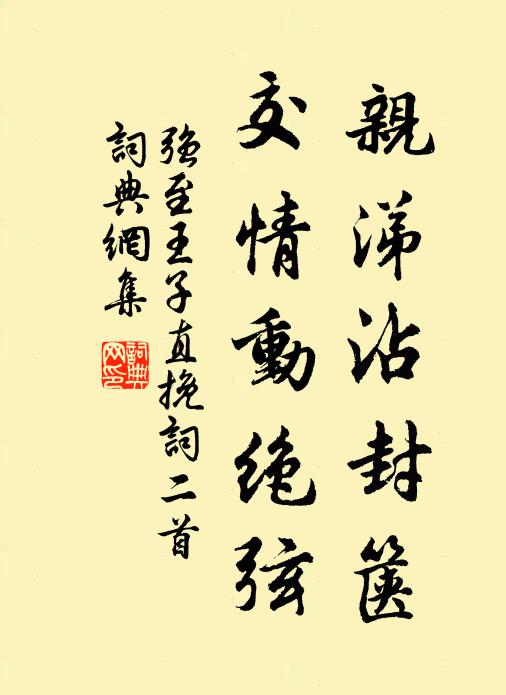 親涕沾封篋
交情動絶弦
強至王子直挽詞二首
詞典網集
詞典
网印